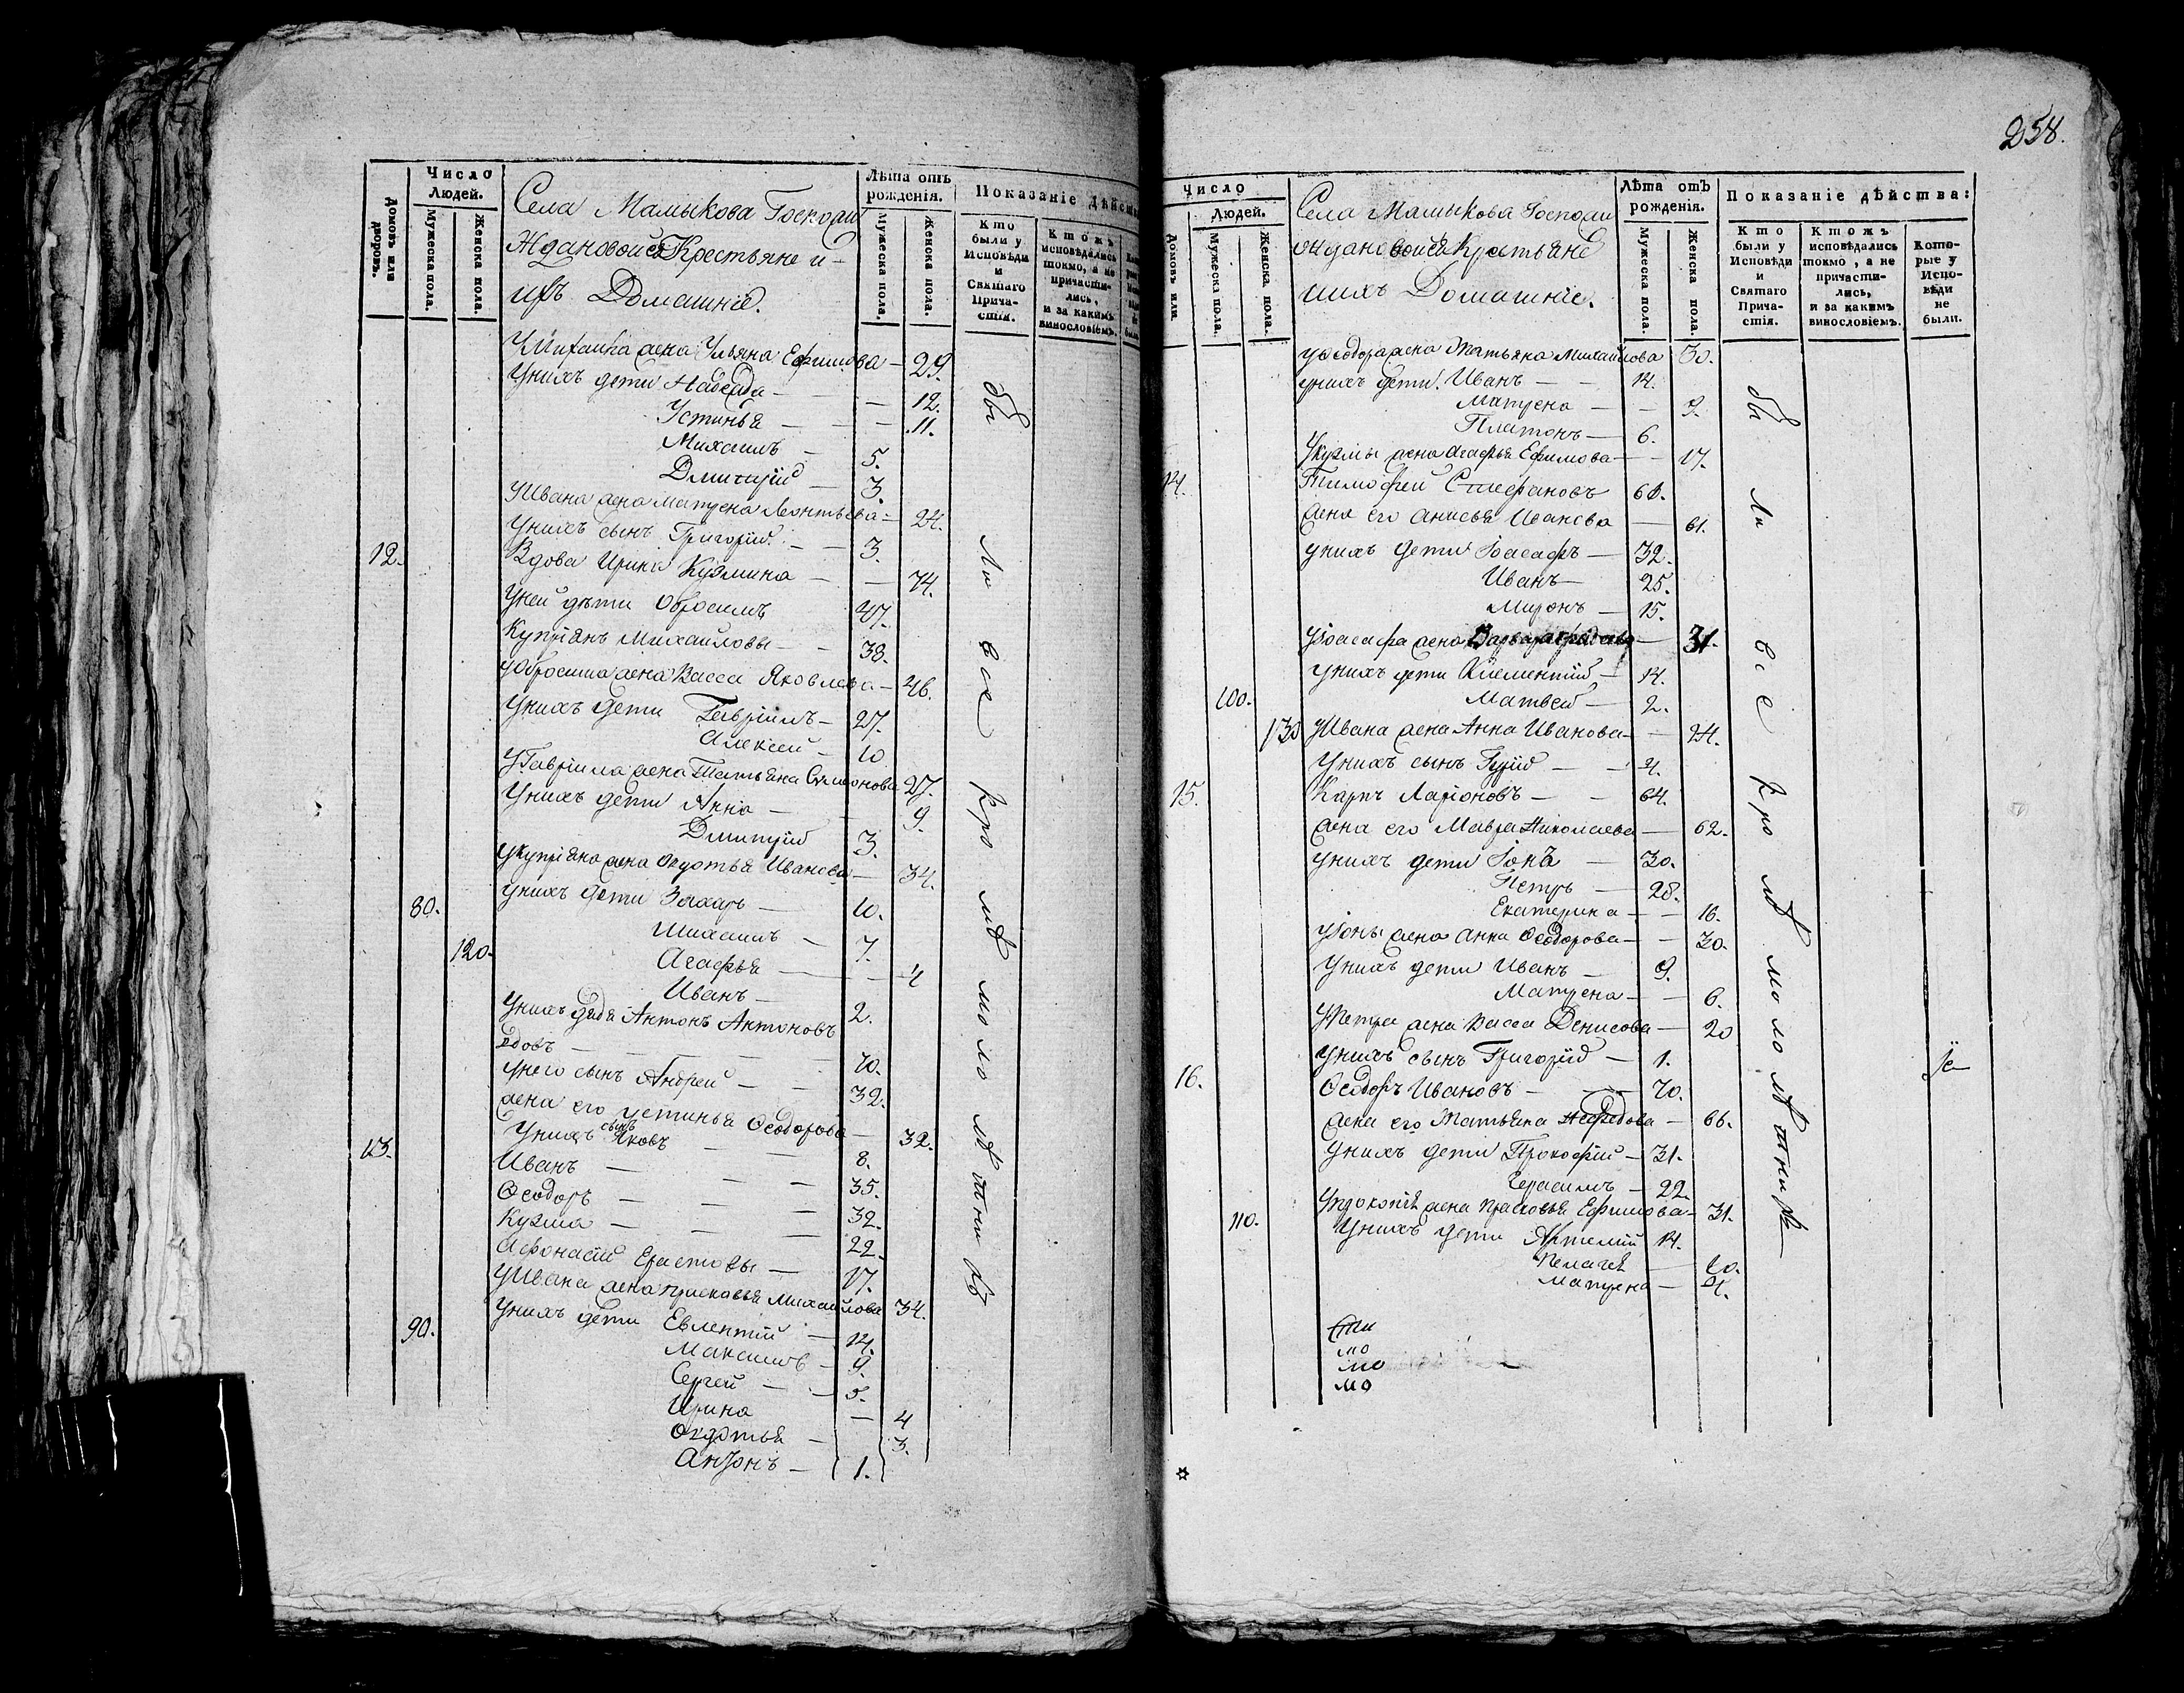 258.
Домовъ или дворовъ.
Число Людей.
Мужеска пола.
Женска пола.
Села Мамыкова Госпожи
Ждановойся Крестьяне и
ихъ Домашніе.
Лѣта отъ рожденія.
Мужеска пола.
Женска пола.
Показаніе дѣйс
Кто были у Исповѣди и Святаго Прича-стія.
Ктожъ исповѣдались токмо, а не причасти-лись, и за какимъ винословіемъ.
УМихаила жена Ульяна Ефимова — 29.
Унихъ дети — 12.
Устинья — 11.
Михаилъ — 5.
Дмитрій — 3.
УИвана жена Матрена Леонтьева — 24.
Унихъ сынъ Григорій — 3.
12. Вдова Ирина Кузмина — 74.
Уней дѣти Обросимъ 47.
Купріянъ Михайловы — 38.
УОбросима жена Васса Яковлева — 46.
Унихъ дети Гавріилъ — 27.
Алексей — 10
УГавріила жена Татьяна Симонова 27.
Унихъ дети Анна — 9.
Дмитрій 3.
УКупріяна жена Овдотья Иванова — 34.
80. Унихъ дети Захаръ — 10.
Михаилъ — 7.
120. Агафья — 4
Иванъ — 2.
Унихъ дядя Антонъ Антоновъ
вдовъ — 70.
Унего сынъ Андрей — 32.
жена его Устинья Ѳеодорова — 32.
Унихъ сынъ Яковъ — 8.
13. Иванъ — 35.
Ѳеодоръ — 32.
Кузма — 22.
Афонасій Ерастовы — 17.
УИвана жена Прасковья Михайлова 34.
90. Унихъ дети Евлентій — 14.
Максимъ — 9.
Сергей — 5.
Ирина — 4
Овдотья — 3.
Антонъ — 1.
бы ли все кро мѣ мо ло лѣ тни хъ
Домовъ или
Число Людей.
Мужеска пола.
Женска пола.
Села Мамыкова Госпожи
Ждановойся Крестьяне
ихъ Домашніе.
Лѣта отъ рожденія.
Мужеска пола.
Женска пола.
Показаніе дѣйства:
Кто были у Исповѣди и Святаго Прича-стія.
Ктожъ исповѣдались токмо, а не причасти-лись, и за какимъ винословіемъ.
Кото-рые у Испо-вѣди не были.
УѲеодора жена Татьяна Михайлова 30.
унихъ дети Иванъ — 14.
Матрена — 9.
Платонъ — 6.
УКузмы жена Агафья Ефимова — 17.
14. Тимофей Стефановъ 68.
жена его Анисья Иванова — 61.
унихъ дети Іоасафъ — 32.
Иванъ — 25.
Миронъ — 15.
УІоасафа жена Варвара — 31.
унихъ дети Климентій — 14.
100. Матвей — 2.
130 УИвана жена Анна Иванова — 24.
Унихъ сынъ Гурій — 4.
15. Карпъ Ларіоновъ — 64.
жена его Мавра Николаева — 62.
унихъ дети Іона — 30.
Петръ — 28.
Екатерина — 16.
уІоны жена Анна Ѳеодорова — 30.
Унихъ дети Иванъ — 9.
Матрена — 6.
УПетра жена Васса Денисова — 20
унихъ сынъ Григорій — 1.
16. Ѳеодоръ Ивановъ — 70.
жена его Татьяна Нефедова — 66.
Унихъ дети Прокофій — 31.
Герасимъ — 22.
110. УПрокопія жена Прасковья Ефимова — 31.
Унихъ дети Артемій 14.
Пелагея — 10.
Матрена — 4.
мо
мо
мо
бы ли все кро мѣ мо ло лѣ тнихъ